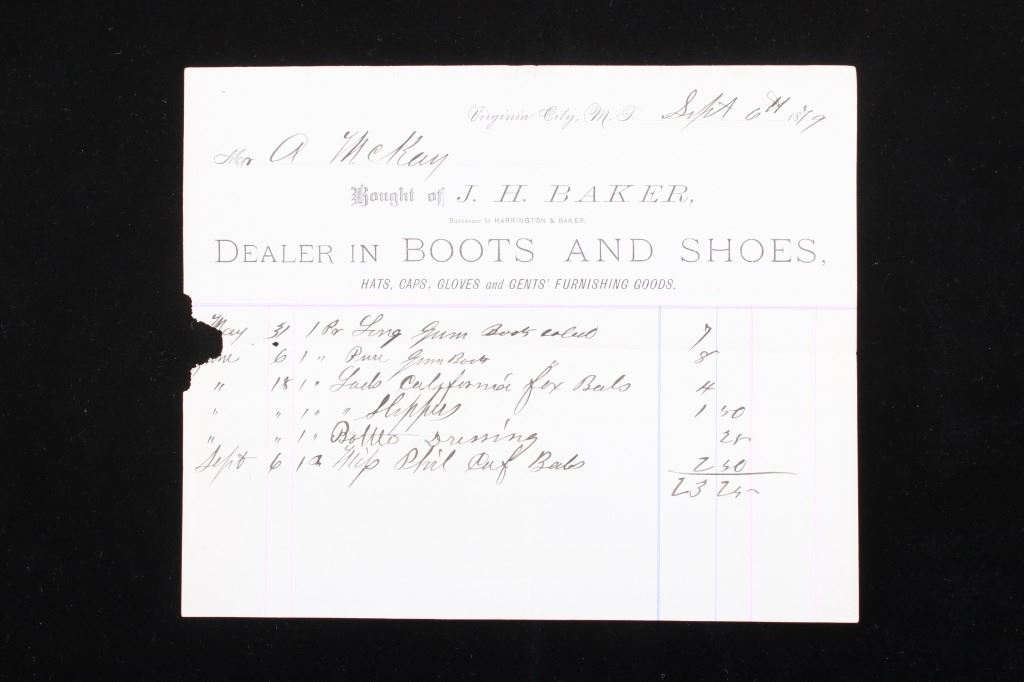 Virginia City, M. T. Sept 6th 1879
Mr A McKay
Bought of J. H. BAKER,
Successor to HARRINGTON & BAKER,
DEALER IN BOOTS AND SHOES,
HATS, CAPS, GLOVES and GENTS' FURNISHING GOODS.
May 31 1 Pr Long Gum Boots 7
6 1 " Pure Gum Boots 8
" 18 1 " California fox Bals 4
" " 1 " " Slippers 1 50
" " 1 " Bottle Dressing 25
Sept 6 1 Phil Calf Bals 2 50
23 25